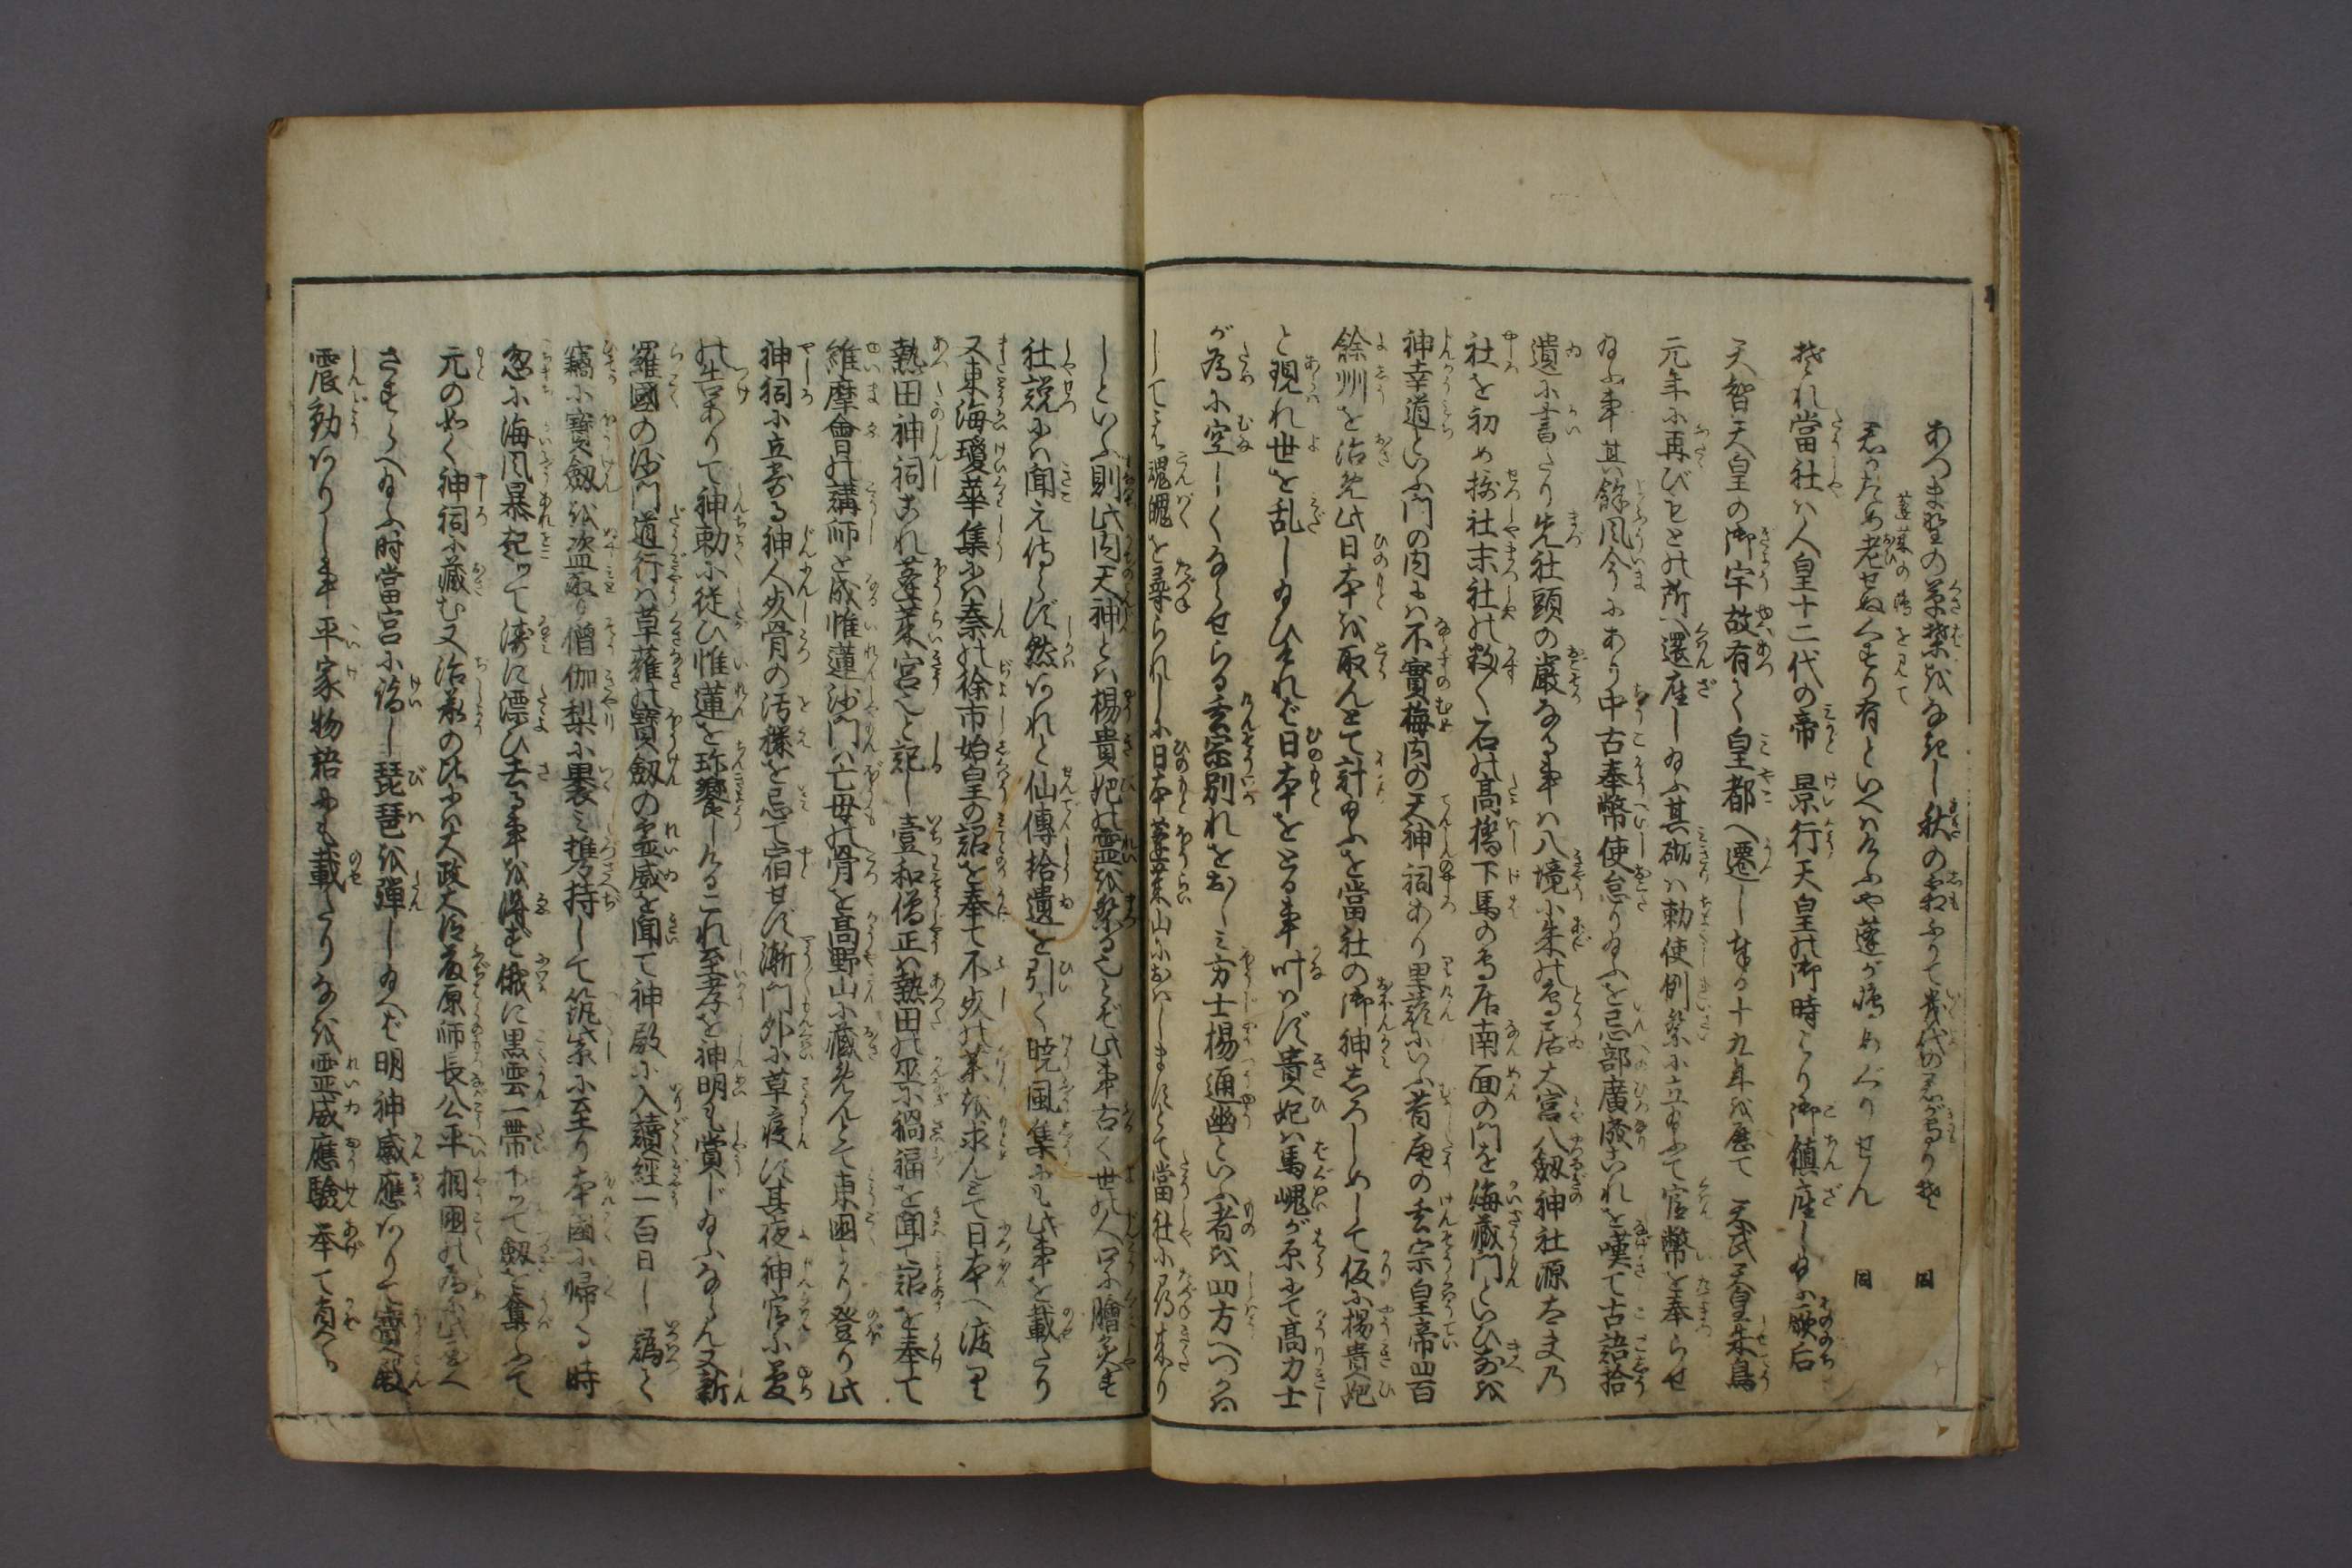 あつま野の草葉をなきし秋の霜ふりて幾代の君が守りそ　同
蓬莱の嶋を見て
君のため老せぬくすり有といへはけふや蓬が嶋めぐりせん　同
夫れ當社ハ人皇十二代の帝　景行天皇の御時より御鎮座し給ふ厥后
天智天皇の御宇故有て皇都へ遷し奉る十九年を歴て　天武天皇朱鳥
元年に再びもとの所へ還座し給ふ其砌ハ勅使例祭に立給ふて官幣を奉らせ
給ふ事其餘風今にあり中古奉幣使怠り給ふを忌部廣成これを嘆て古語拾
遺に書たり先社頭の嚴なる事ハ八境に朱の鳥居大宮八劔神社源太夫乃
社を初め摂社末社の数く石の高橋下馬の鳥居南面の門を海藏門といひ前を
神幸道といふ門の内にハ不實梅内の天神祠あり里諺にいふ昔唐の玄宗皇帝四百
餘州を治め此日本を取んとて計給ふを當社の御神しろしめして仮に楊貴妃
と現れ世を乱し給ひければ日本をとる事叶ハず貴妃ハ馬嵬が原にて高力士
が為に空しくならせらる玄宗別れをおしミ方士楊通幽といふ者を四方へつかハ
してその魂魄を尋られしに日本蓬莱山におハしますとて當社に尋来り
しといふ則此内天神とハ楊貴妃の霊を祭る也とぞ此事古く世の人口に膾炙す
社説にハ聞え侍らず然はれと仙傳拾遺を引く暁風集にも此事を載たり
又東海瓊華集にハ秦の徐市始皇の詔を奉て不死の薬を求んとて日本へ渡り
熱田神祠これ蓬莱宮也と記し壹和僧正ハ熱田の巫に禍福を聞て詔を奉て
維摩會の講師と成惟蓮沙門ハ亡母の骨を高野山に藏めんとて東國より登り此
神祠に立寄る神人死骨の汚穢を忌て宿せず漸門外に草寝す其夜神官に夢
の告ありて神勅に従ひ惟蓮を珍饗しけるこれ至孝を神明も賞じ給ふならん又新
羅國の沙門道行ハ草薙の寶劔の霊威を聞て神殿に入讀經一百日し偽て
竊に寶劔を盗取り僧伽梨に裹ミ携持して筑紫に至り本國に帰る時
忽に海風暴起りて濤に漂ひ去る事を得ず俄に黒雲一帯下りて劔を奪ふて
元の如く神祠に藏む又治承の比にハ太政大臣藤原師長公平相國の為に此國へ
さすらへ給ふ時當宮に詣し琵琶を弾し給へば明神感應ありて寶殿
震動ありし事平家物語にも載たりなを霊威應驗奉て有べる